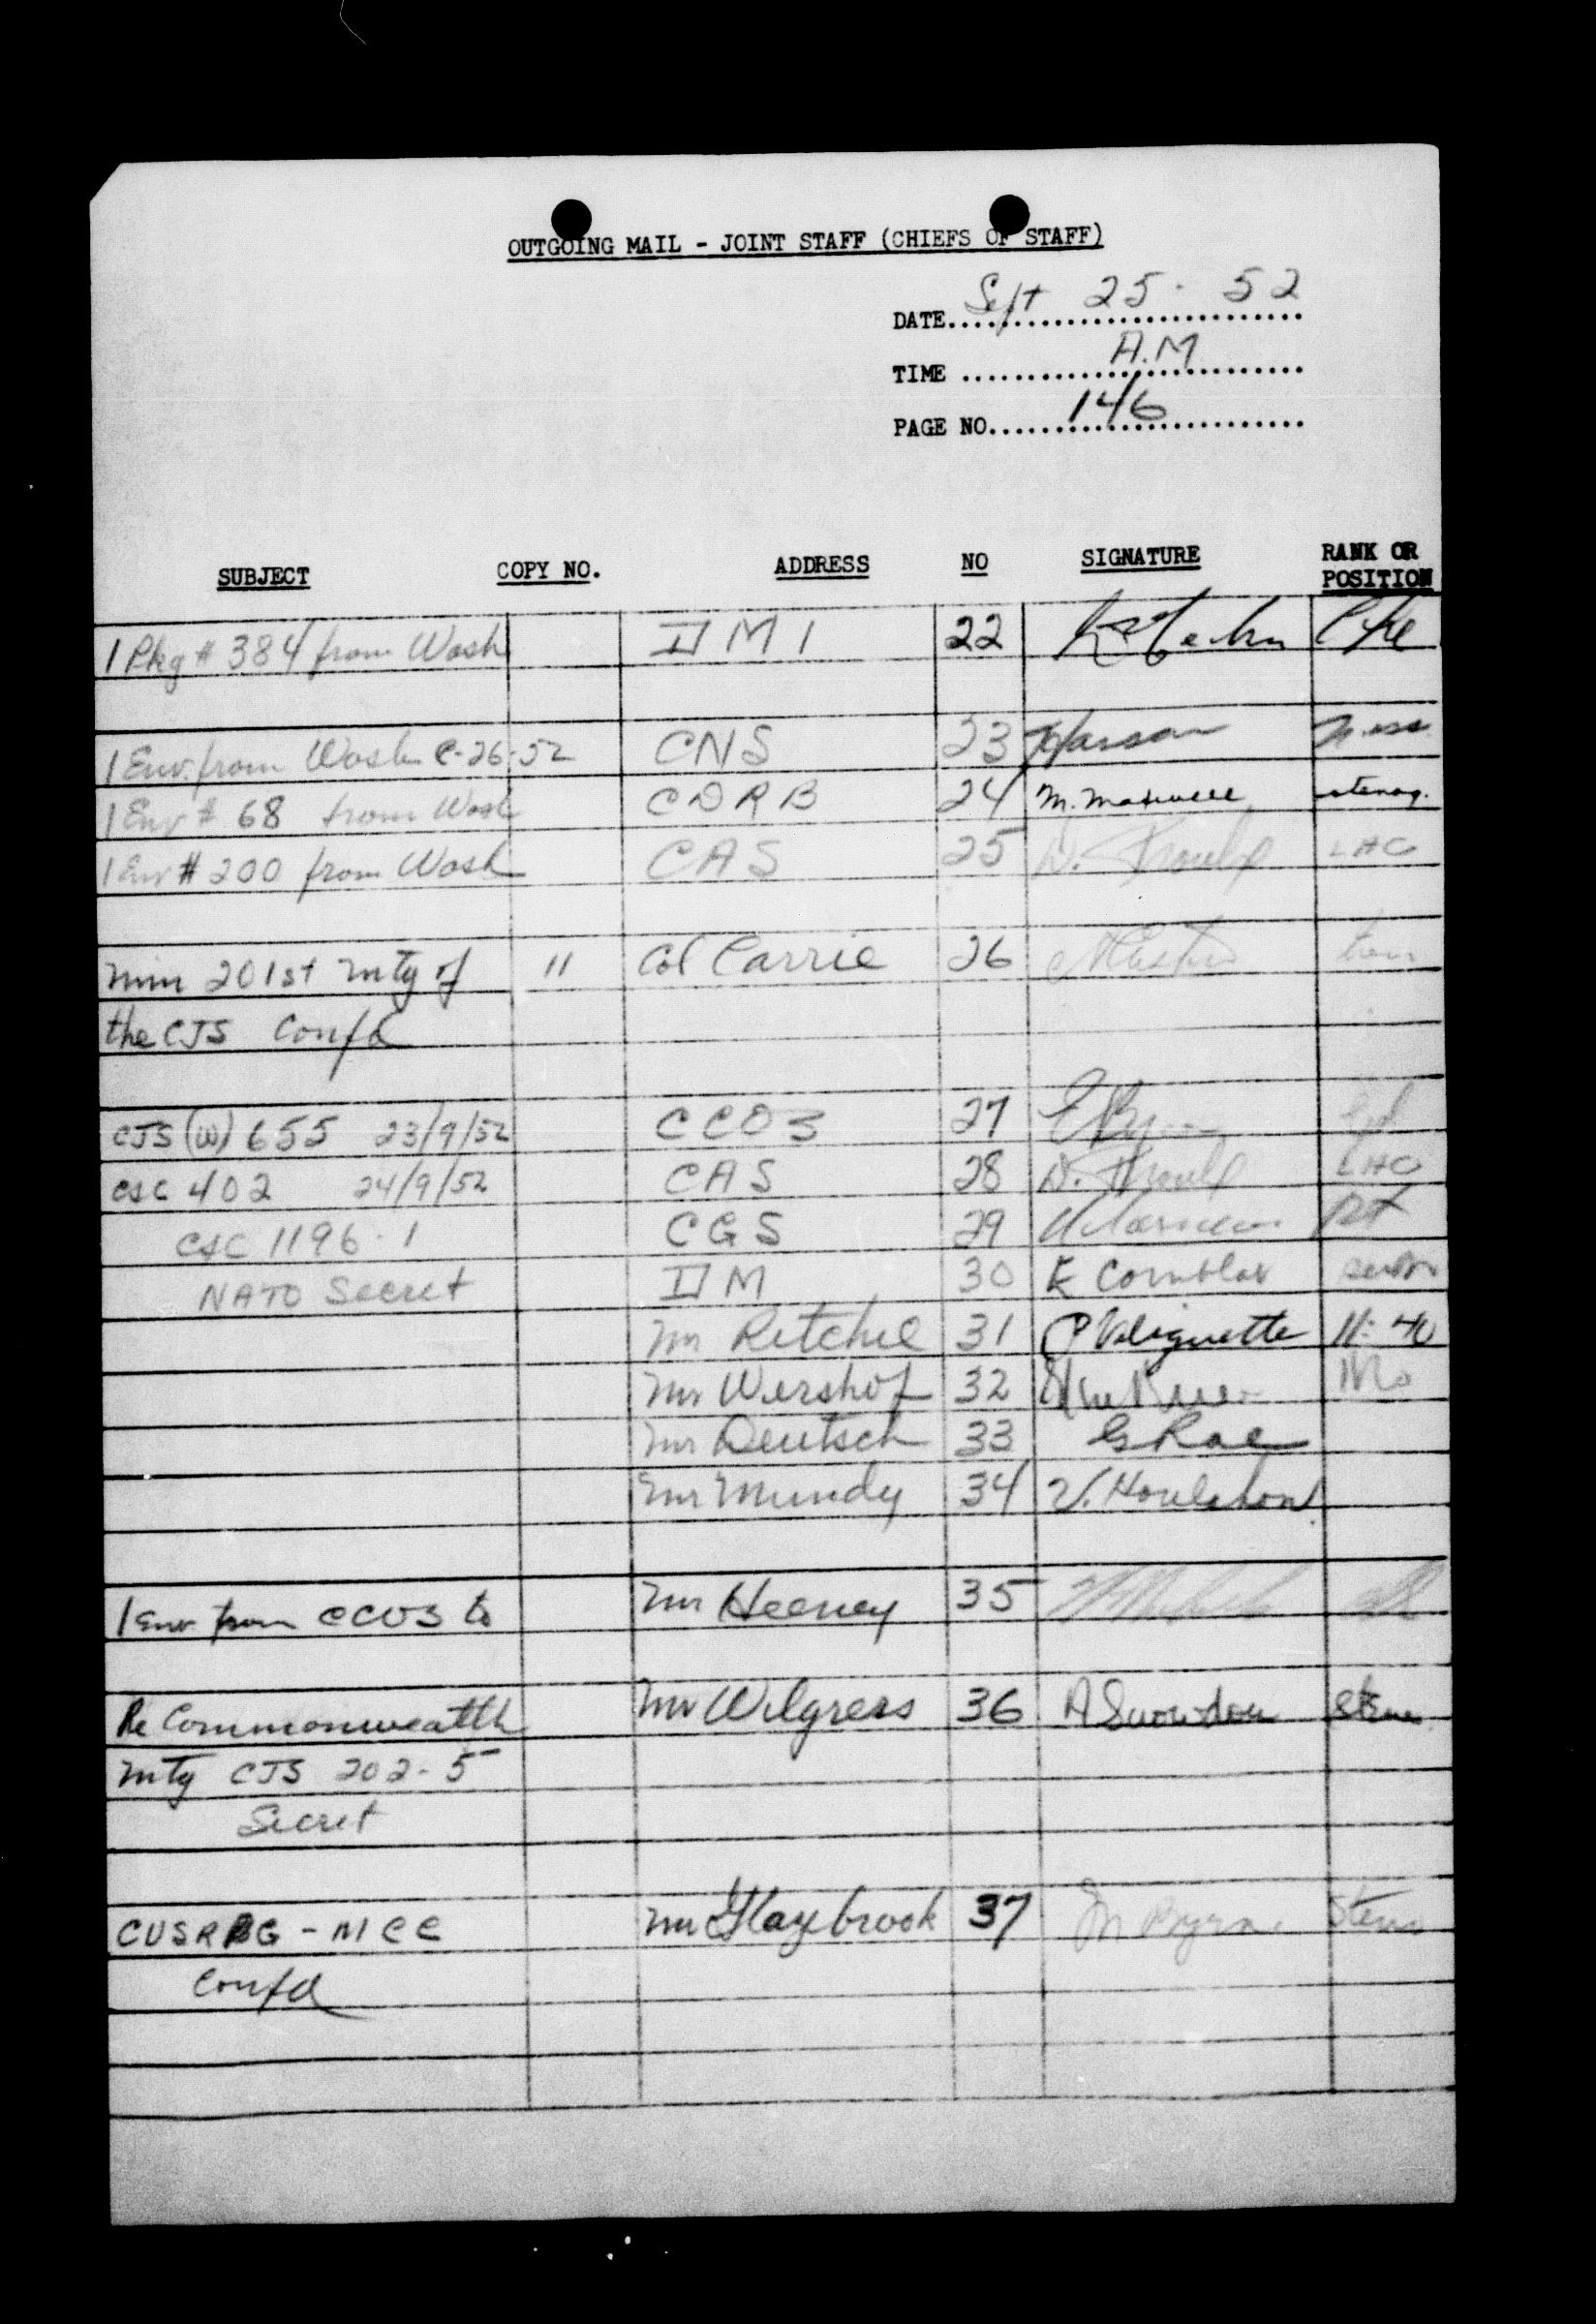 OUTGOING MAIL - JOINT STAFF (CHIEFS OF STAFF)
DATE Sept 25 · 52
TIME A.M
PAGE NO. 146
SUBJECT COPY NO. ADDRESS NO SIGNATURE RANK OR POSITION
1 Pkg # 384 from Wash DMI 22
1 Env. from Wash C-26-52 CNS 23
1 Env # 68 from Wash CDRB 24 M. Maxwell stenog.
1 Env # 200 from Wash CAS 25 D. Proulx LAC
Min 201st Mtg of 11 Col Carrie 26
the CJS Confd
CJS (W) 655 23/9/52 CCOS 27
CSC 402 24/9/52 CAS 28 D. Proulx LAC
CSC 1196·1 CGS 29
NATO Secret DM 30 E Cornblat
Mr Ritchie 31 P Valiquette 11:40
Mr Wershof 32
Mr Deutsch 33 G Rae
Mr Mundy 34 V. Houlahan
1 Env from CCOS to Mr Heeney 35
Re Commonwealth Mr Wilgress 36 A Snowdon Steno
Mtg CJS 202-5
Secret
CUSRPG - MCC Mr Glaybrook 37 M Byrne Steno
Confd